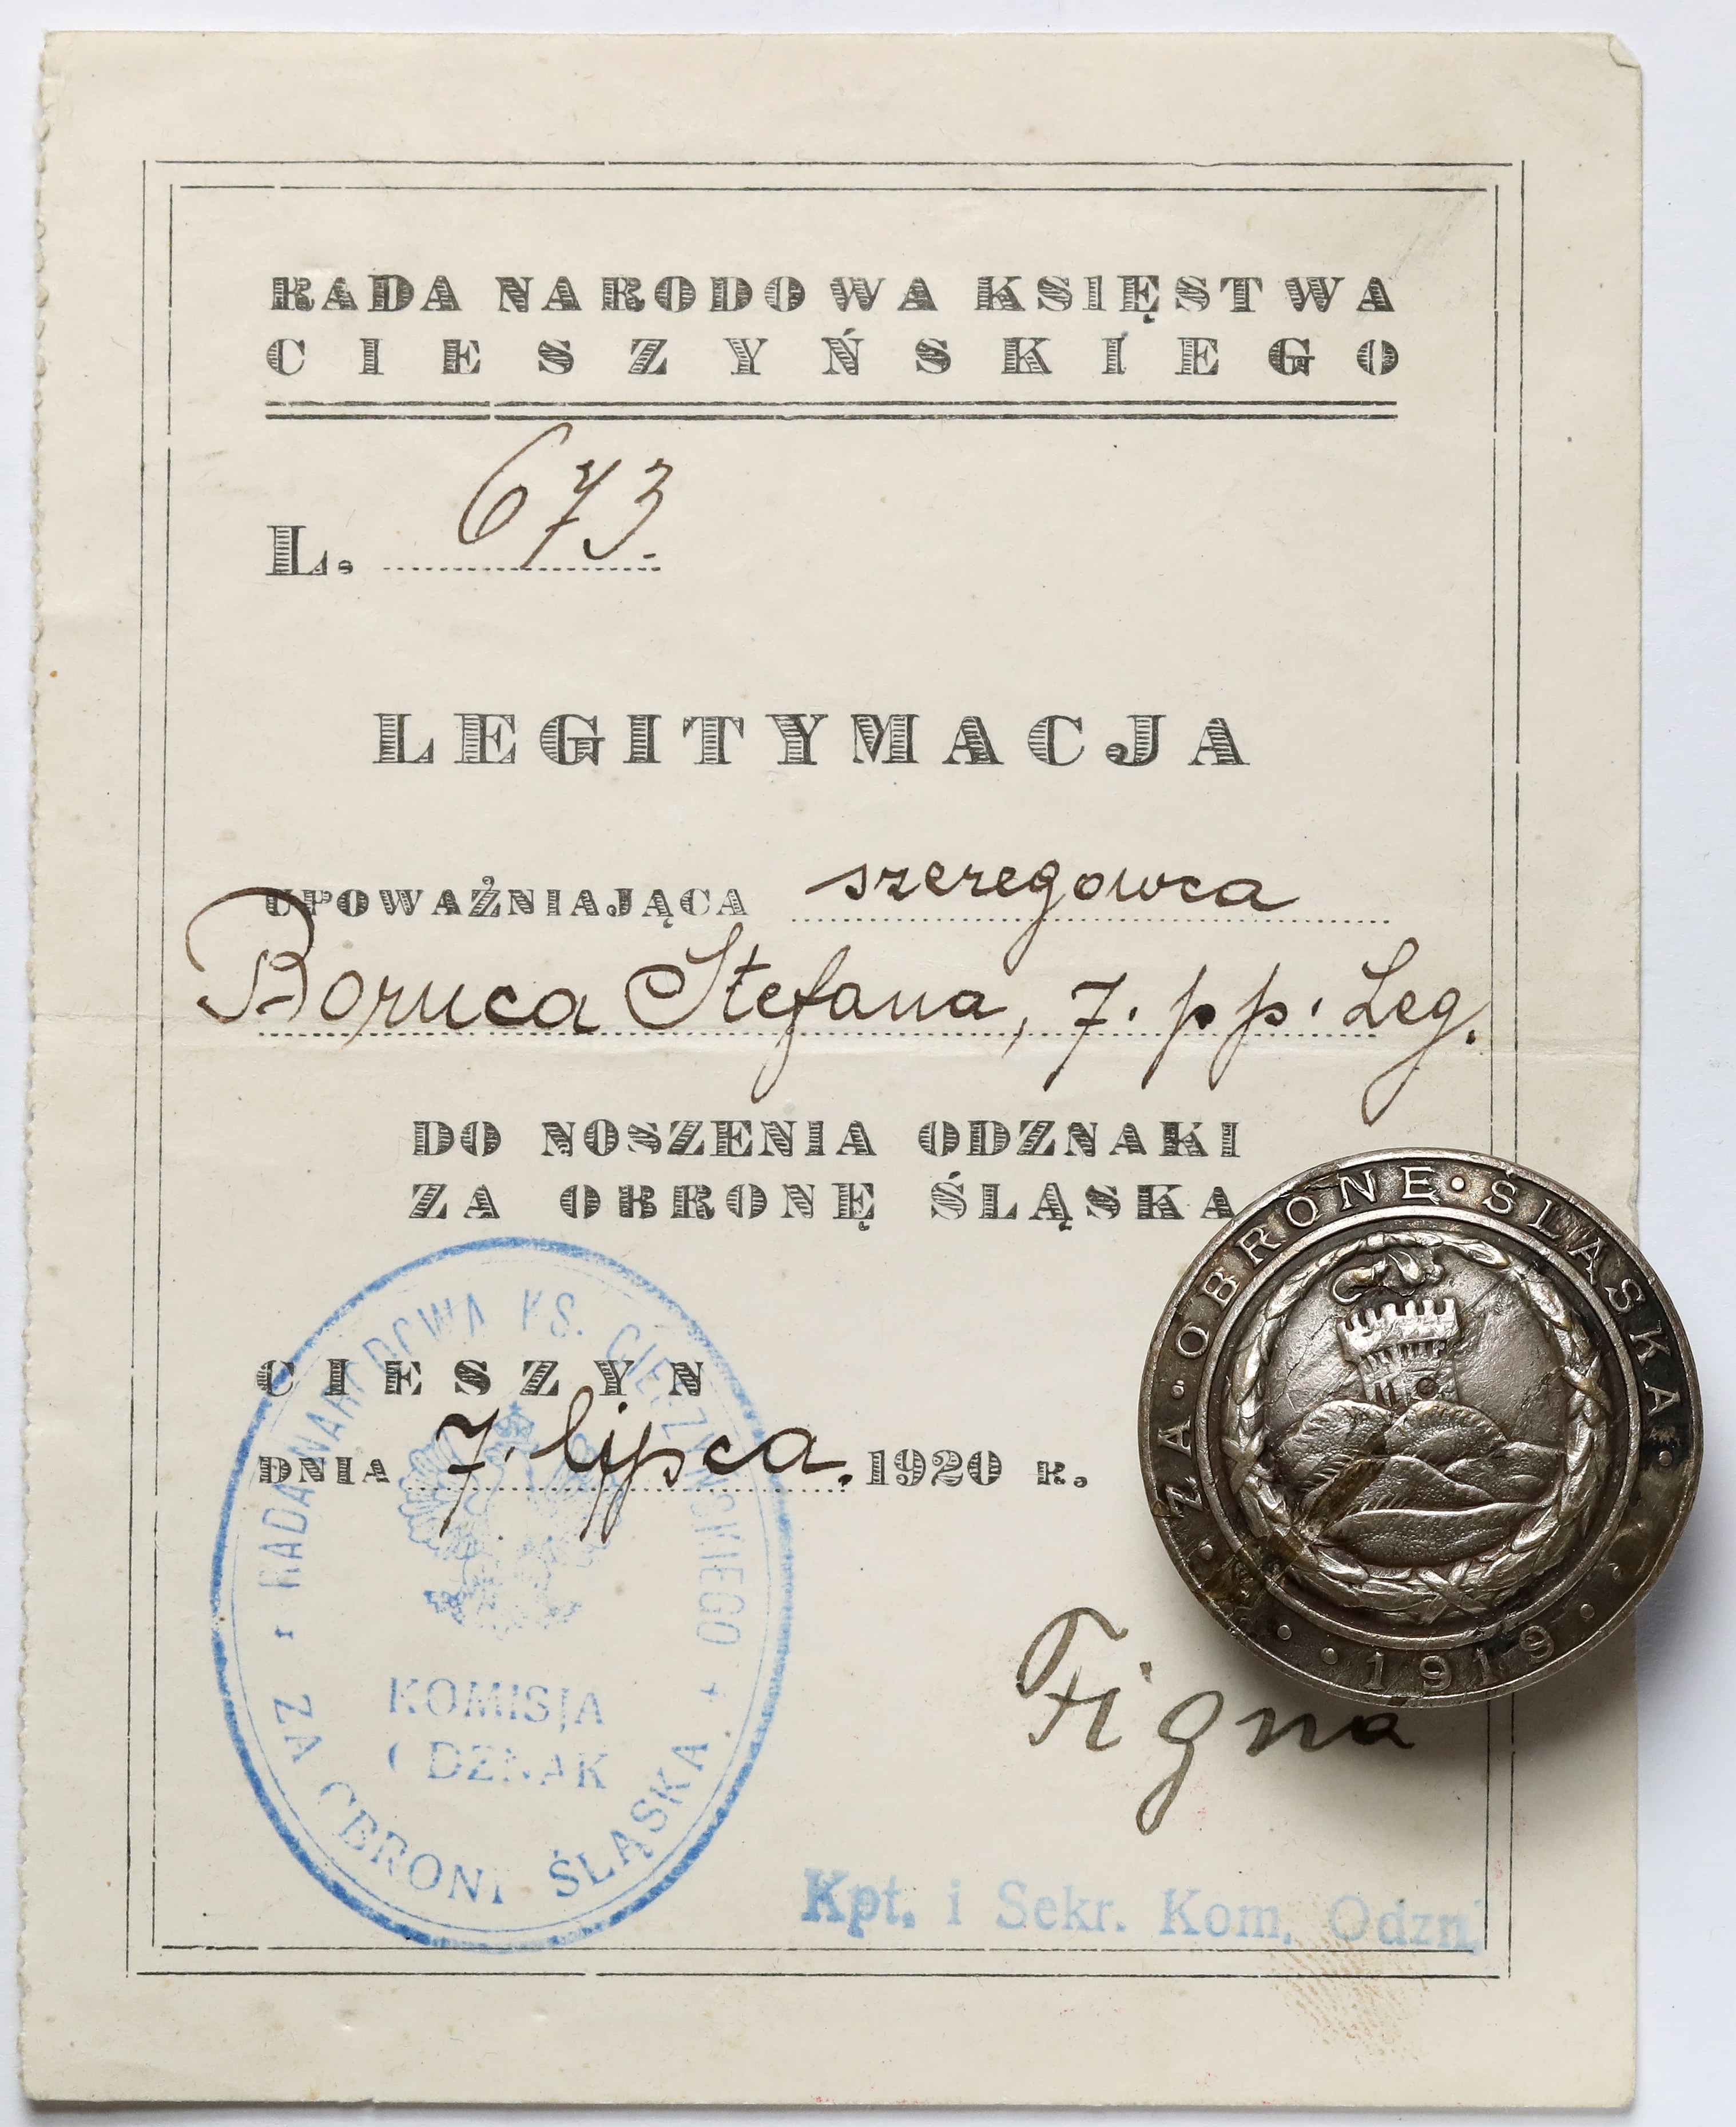 RADA NARODOWA KSIĘSTWA
CIESZYŃSKIEGO
L. 673.
LEGITYMACJA
UPOWAŻNIAJĄCA szeregowca
Boruca Stefana, 7. pp. Leg.
DO NOSZENIA ODZNAKI
ZA OBRONĘ ŚLĄSKA
CIESZYN
DNIA 7. lipca. 1920 R.
RADA NARODOWA KS. CIESZYŃSKIEGO
KOMISJA
ODZNAK
ZA OBRONĘ ŚLĄSKA
Figna
Kpt. i Sekr. Kom. Odzn.
ZA · OBRONĘ · ŚLĄSKA
1919